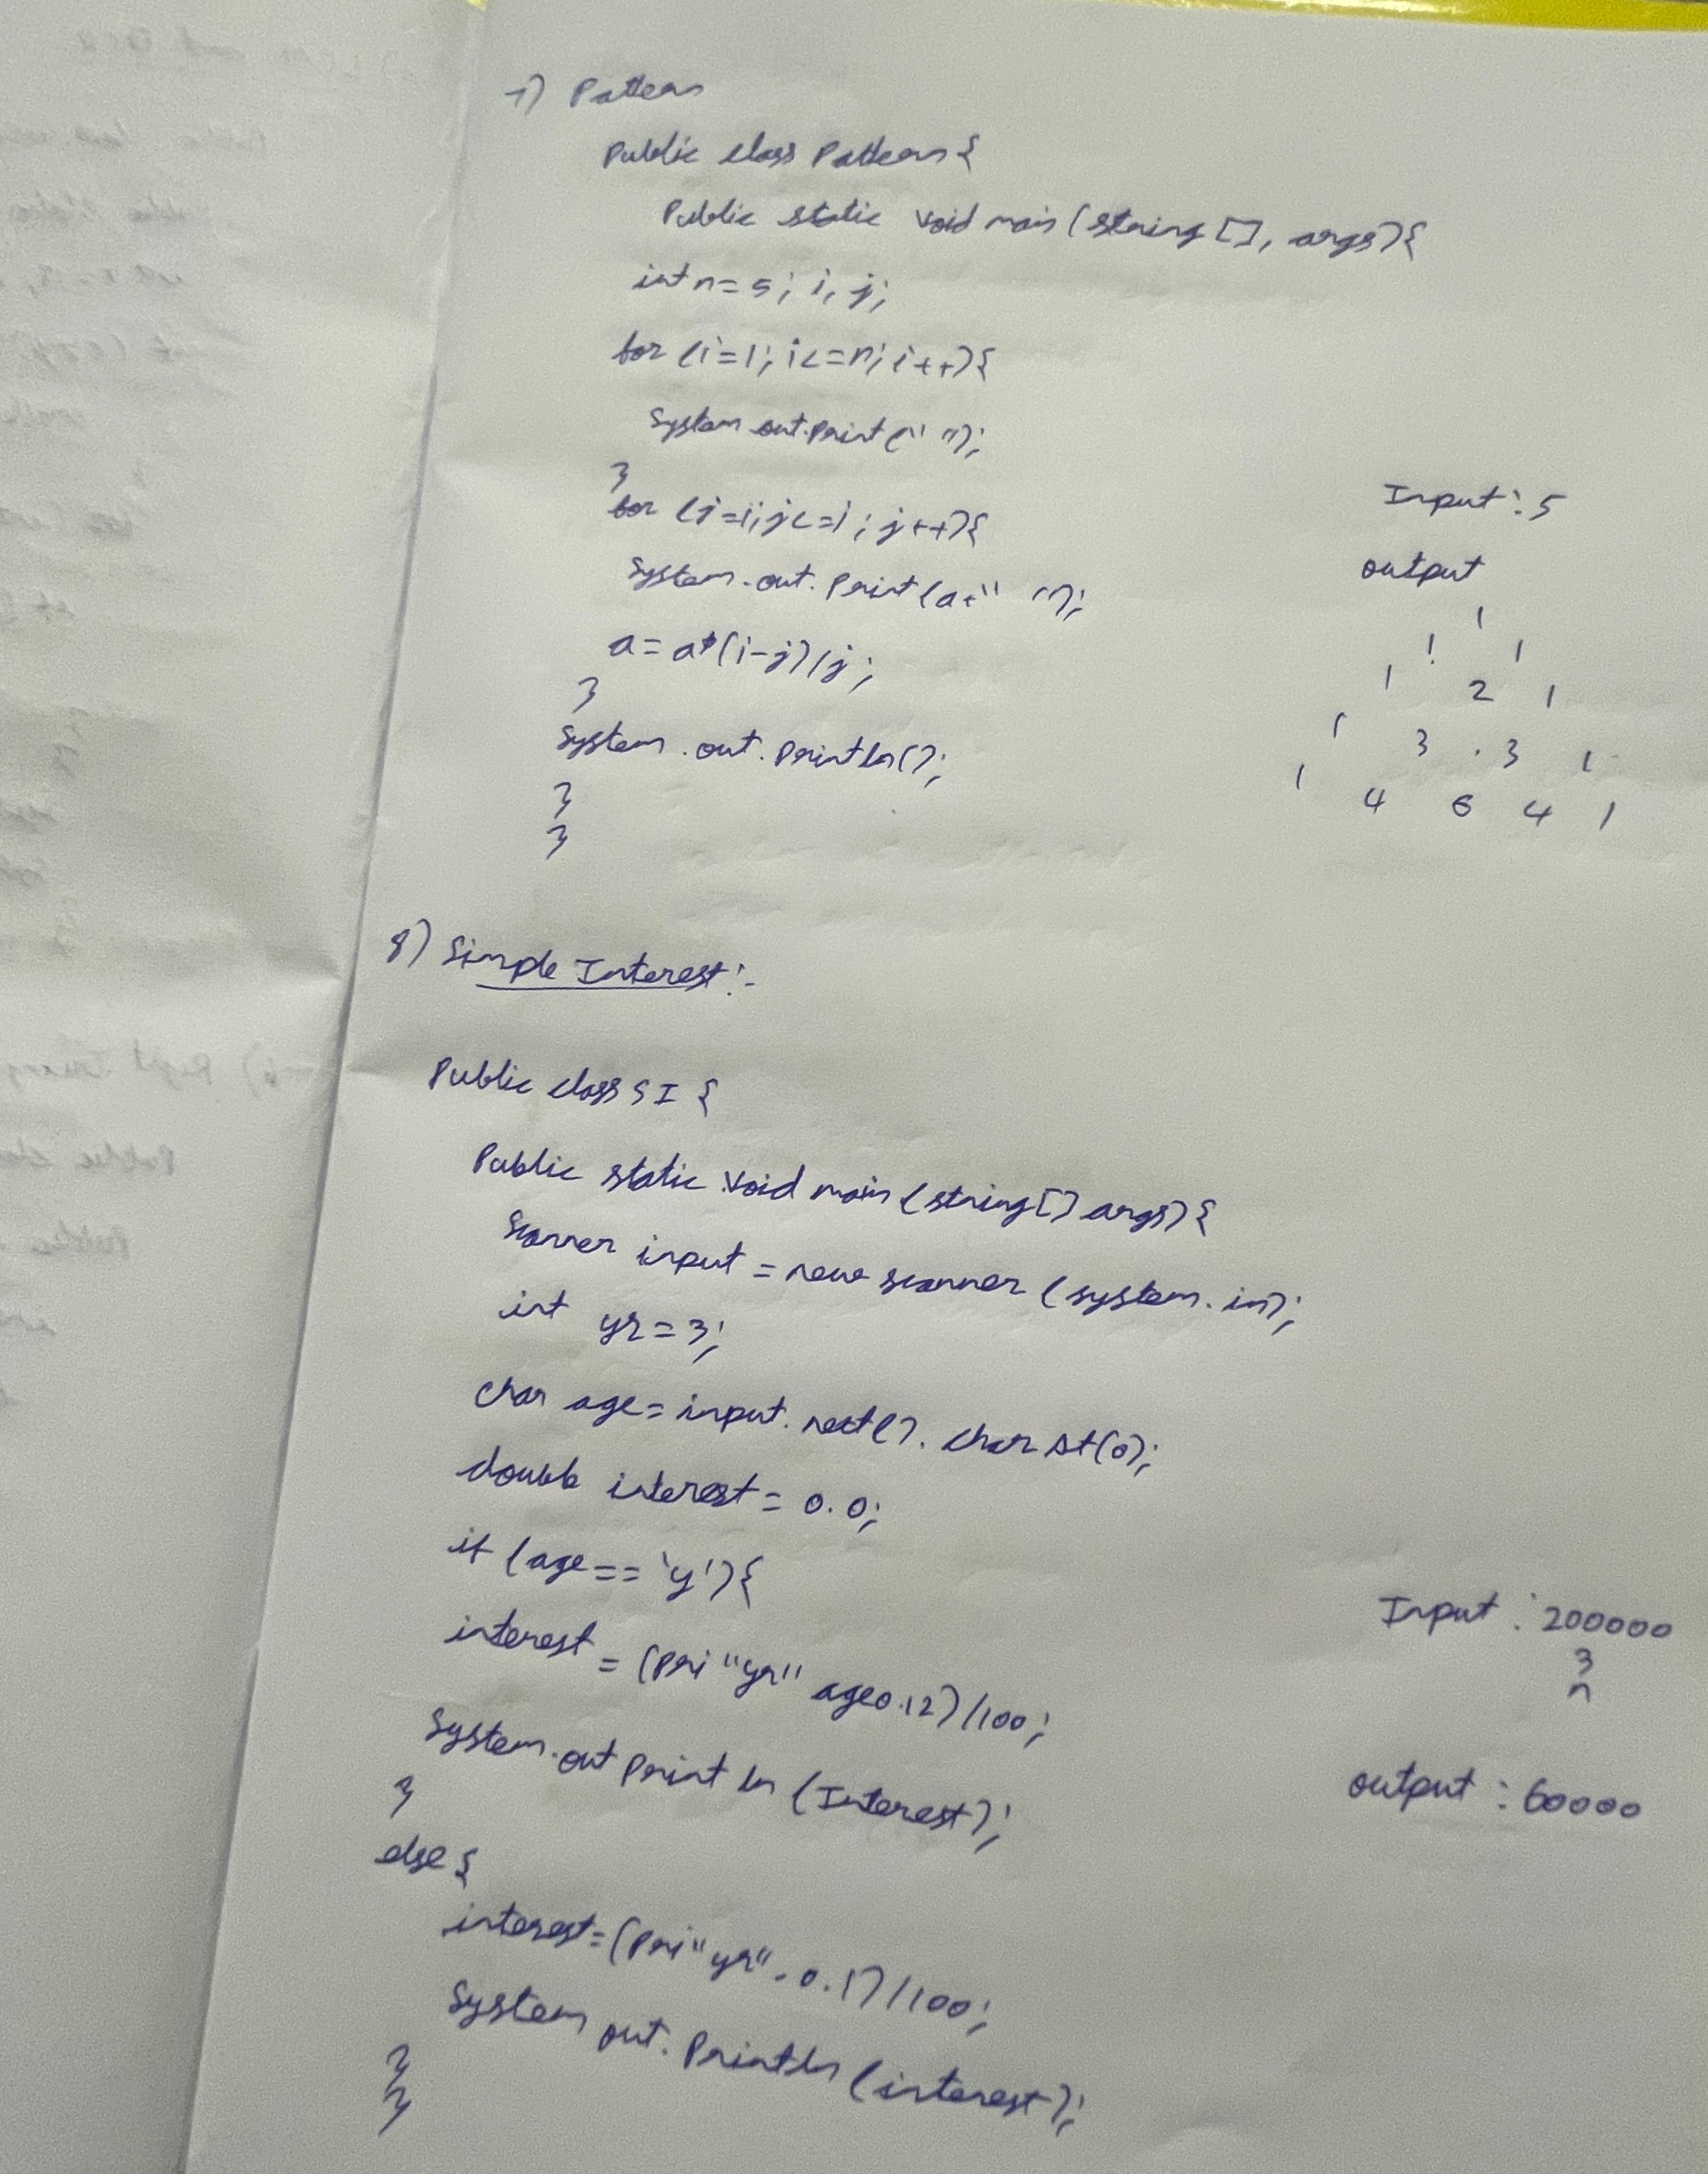 7) Pattern
Public class Pattern {
Public static void main (string [], args) {
int n = 5; i, j;
for (i=1; i<=n; i++) {
System out.print (" ");
}
for (j=i; j<=i; j++) {
System.out.Print (a+" ");
a = a*(i-j)/j;
}
System.out.println();
}
}
Input: 5
output
1
1 1
1 2 1
1 3 3 1
1 4 6 4 1
8) Simple Interest:-
Public class SI {
Public static void main (string[] args) {
Scanner input = new scanner (system.in);
int yr = 3;
char age = input.next().charAt(0);
double interest = 0.0;
if (age == 'y') {
interest = (pri "yr" age0.12)/100;
System.out println (Interest);
}
else {
interest = (pri "yr" . 0.1)/100;
System out.Println (interest);
}
}
Input : 200000
3
n
output : 60000